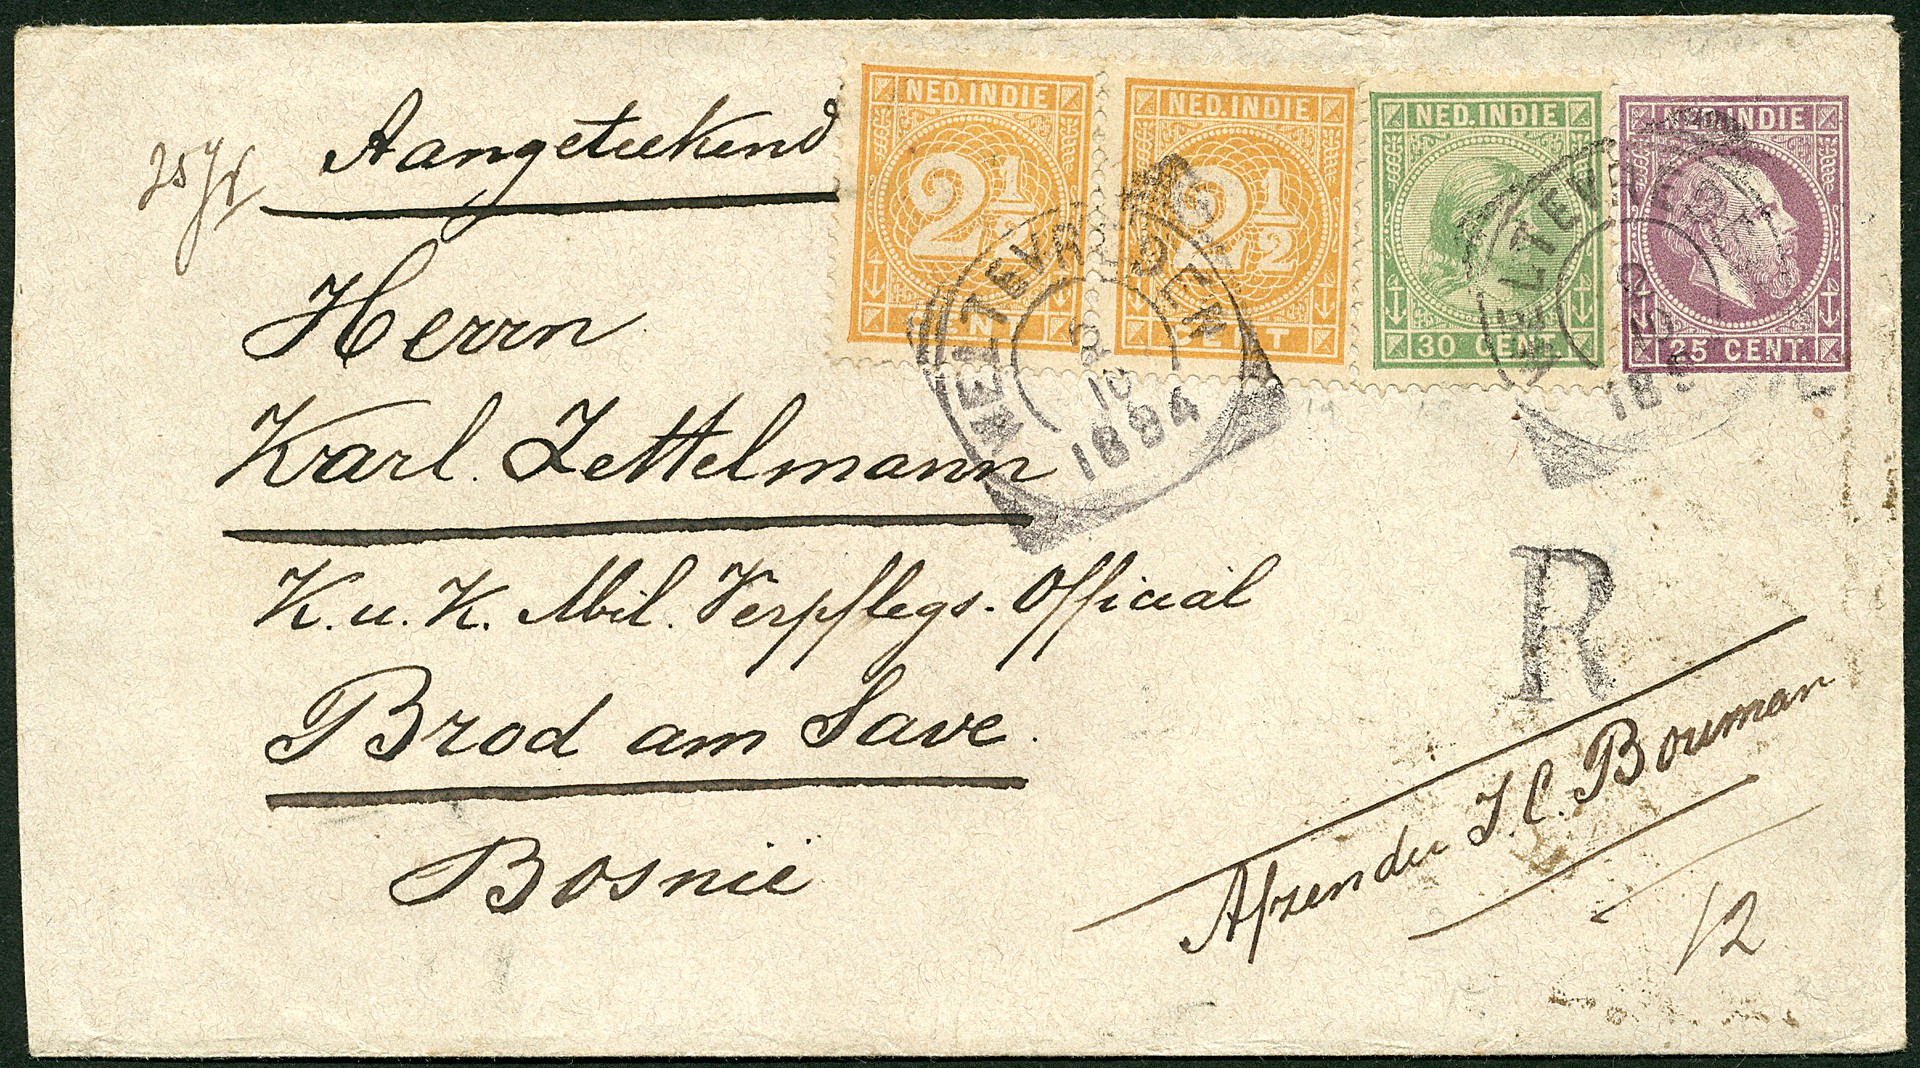 Aangeteekend
NED.INDIE
2½
CENT
NED.INDIE
2½
CENT
NED.INDIE
30 CENT.
NED.INDIE
25 CENT.
WELTEVREDEN
10
1894
WELTEVREDEN
Herrn
Karl. Zettelmann
K. u. K. Mil. Verpflegs. Official
Brod am Save.
Bosnië
R
Afzender J. C. Bouman
12